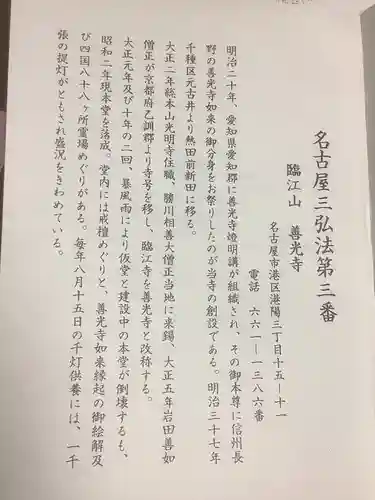 名古屋三弘法第三番
臨江山　善光寺
名古屋市港区港陽三丁目十五ー十一
電話　六六一ー一三八六番
明治二十年、愛知県愛知郡に善光寺燈明講が組織され、その御本尊に信州長
野の善光寺如来の御分身をお祭りしたのが当寺の創設である。明治三十七年
千種区元古井より熱田前新田に移る。
大正二年総本山光明寺住職、勝川相善大僧正当地に来錫、大正五年岩田善如
僧正が京都府乙訓郡より寺号を移し、臨江寺を善光寺と改称する。
大正元年及び十年の二回、暴風雨により仮堂と建設中の本堂が倒壊するも、
昭和二年現本堂を落成。堂内には戒檀めぐりと、善光寺如来縁起の御絵解及
び四国八十八ヶ所霊場めぐりがある。毎年八月十五日の千灯供養には、一千
張の提灯がともされ盛況をきわめている。